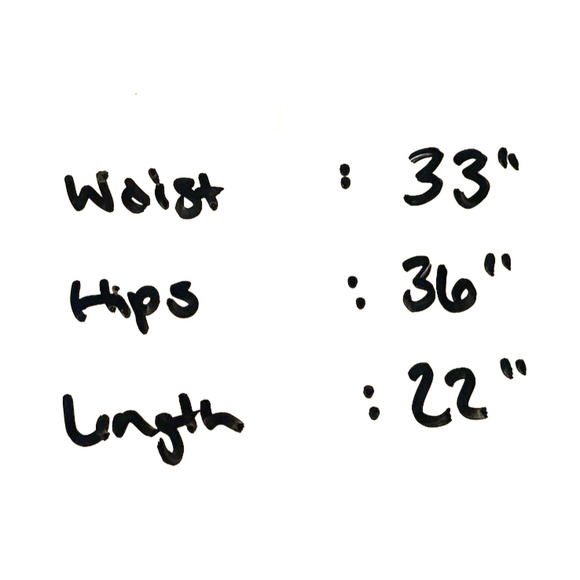 Waist : 33"
Hips : 36"
Length : 22"